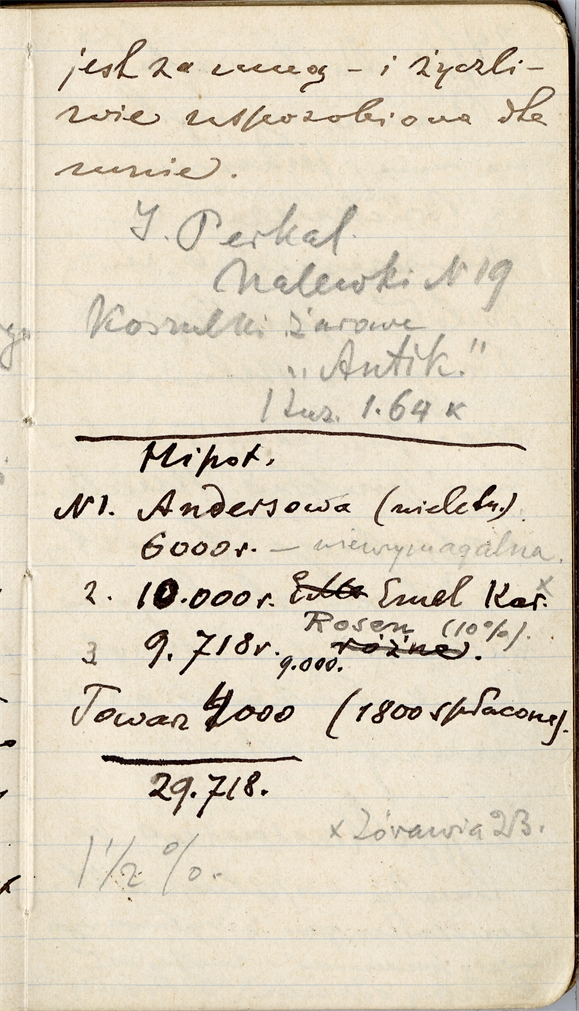 jest za mną – i życzli-
wie usposobiona dla
mnie.
J. Perkal.
Nalewki N 19
Koszulki żarowe
"Antik."
1 tuz. 1.64 k
Hipot.
N1. Andersowa (nieletn.)
6000 r. – niewymagalna.
2. 10.000 r. Emel Kar. x
Rosen (10%).
3 9.718 r. różne.
9.000.
Towar 4000 (1800 spłacone).
29.718.
x Żórawia 23.
1 1/2 %.